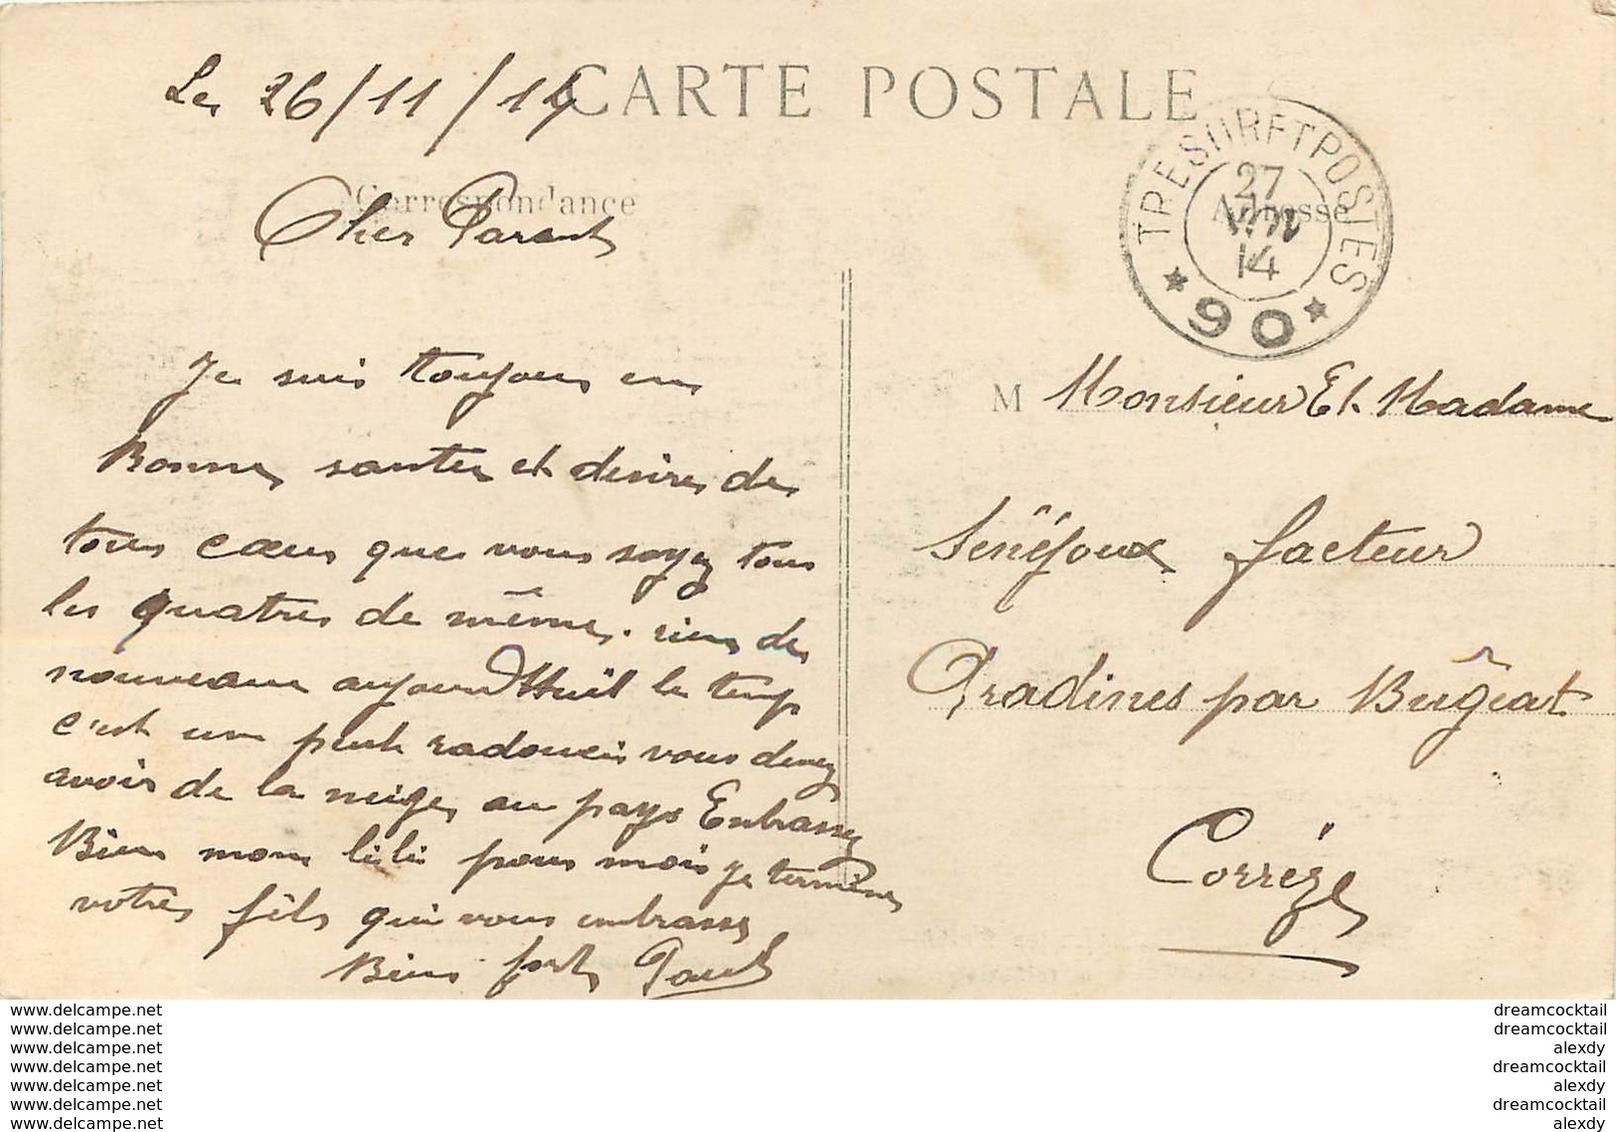 CARTE POSTALE
Le 26/11/14
Correspondance
Cher Parent
Je suis toujours en
Bonne santée et desire de
tous cœur que vous soyez tous
les quatres de même. rien de
nouveau aujourd'Huil le temp
c'est un peut radouci vous devez
avoir de la neige au pays Enbrassez
Bien mon lili pour moi je termine
votres fils qui vous embrasse
Bien fort Paul
TRESOR ET POSTES
27
14
* 90 *
Adresse
M Monsieur Et Madame
Sénéjoux facteur
Pradines par Bugeat
Corrèze
www.delcampe.net
www.delcampe.net
www.delcampe.net
www.delcampe.net
www.delcampe.net
www.delcampe.net
www.delcampe.net
dreamcocktail
dreamcocktail
alexdy
dreamcocktail
alexdy
dreamcocktail
alexdy